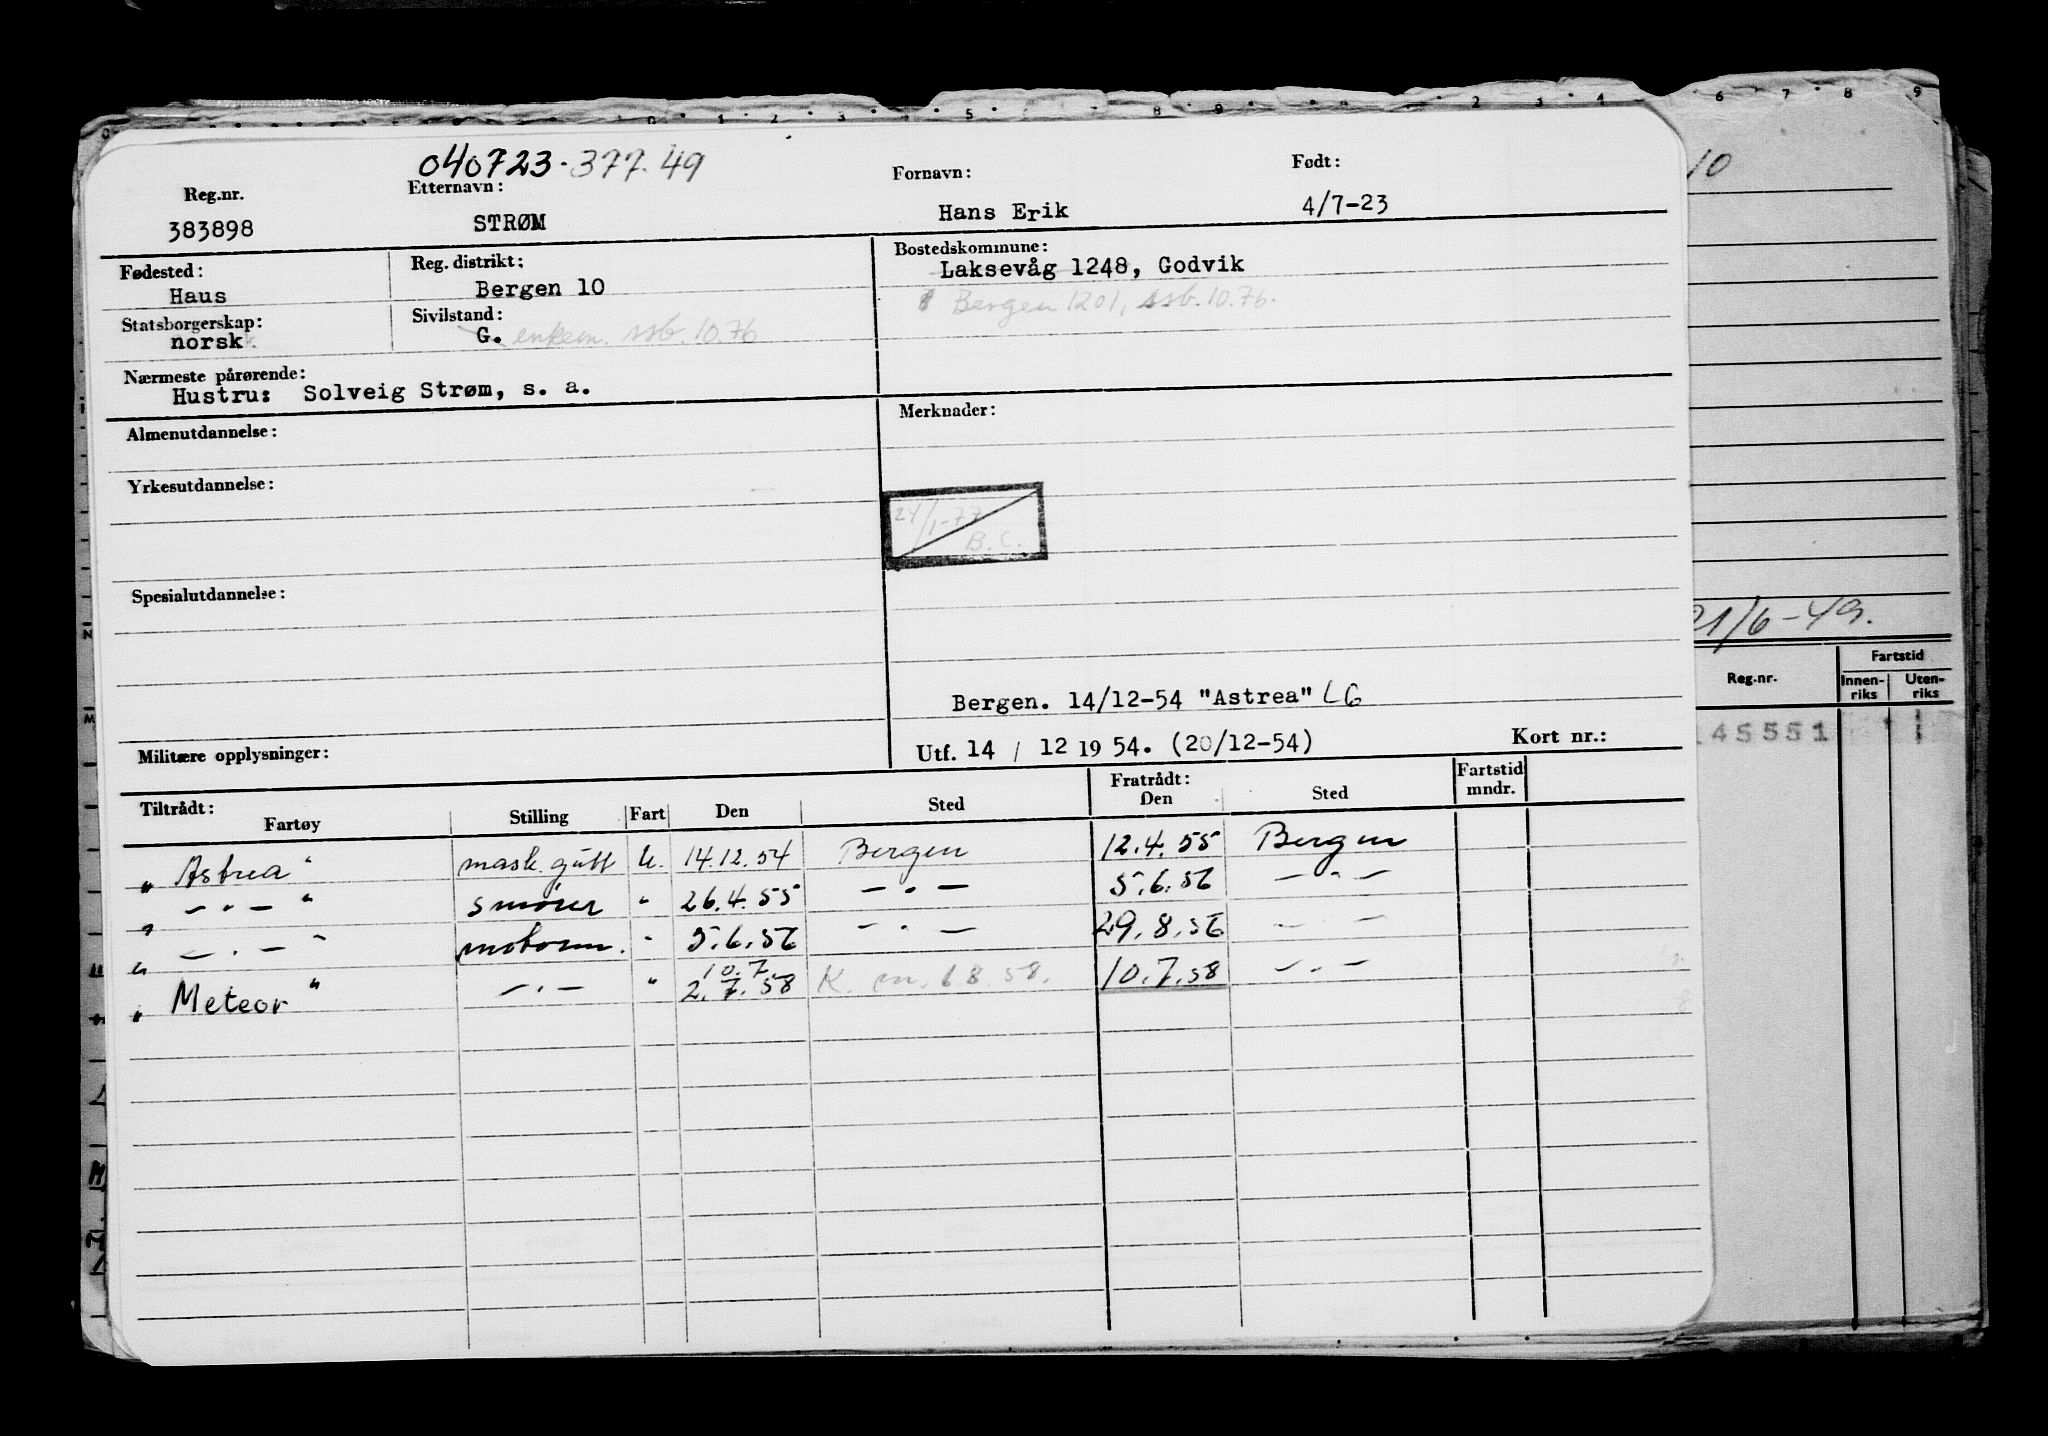 040723.377.49
Reg.nr. Etternavn: Fornavn: Født:
383898 STRØM Hans Erik 4/7-23
Fødested: Reg. distrikt: Bostedskommune:
Haus Bergen 10 Laksevåg 1248, Godvik
Bergen 1201, ssb. 10.76.
Statsborgerskap: Sivilstand:
norsk G. enkem. ssb. 10.76
Nærmeste pårørende:
Hustru: Solveig Strøm, s. a.
Almenutdannelse: Merknader:
Yrkesutdannelse:
24/1-77
B.C.
Spesialutdannelse:
Bergen. 14/12-54 "Astrea" LG
Militære opplysninger: Utf. 14 / 12 19 54. (20/12-54) Kort nr.:
Tiltrådt: Fratrådt: Fartstid
Fartøy Stilling Fart Den Sted Den Sted mndr.
"Astrea" mask. gutt U. 14.12.54 Bergen 12.4.55 Bergen
" — . — " smører " 26.4.55 — . — 5.6.56 — . —
" — . — " motorm. " 5.6.56 — . — 29.8.56 — . —
10.7.
"Meteor" — . — " 2.7.58 K. 10.7.58 — . —
10
21/6-49.
Reg.nr. Fartstid
Innen-riks Uten-riks
145551 1